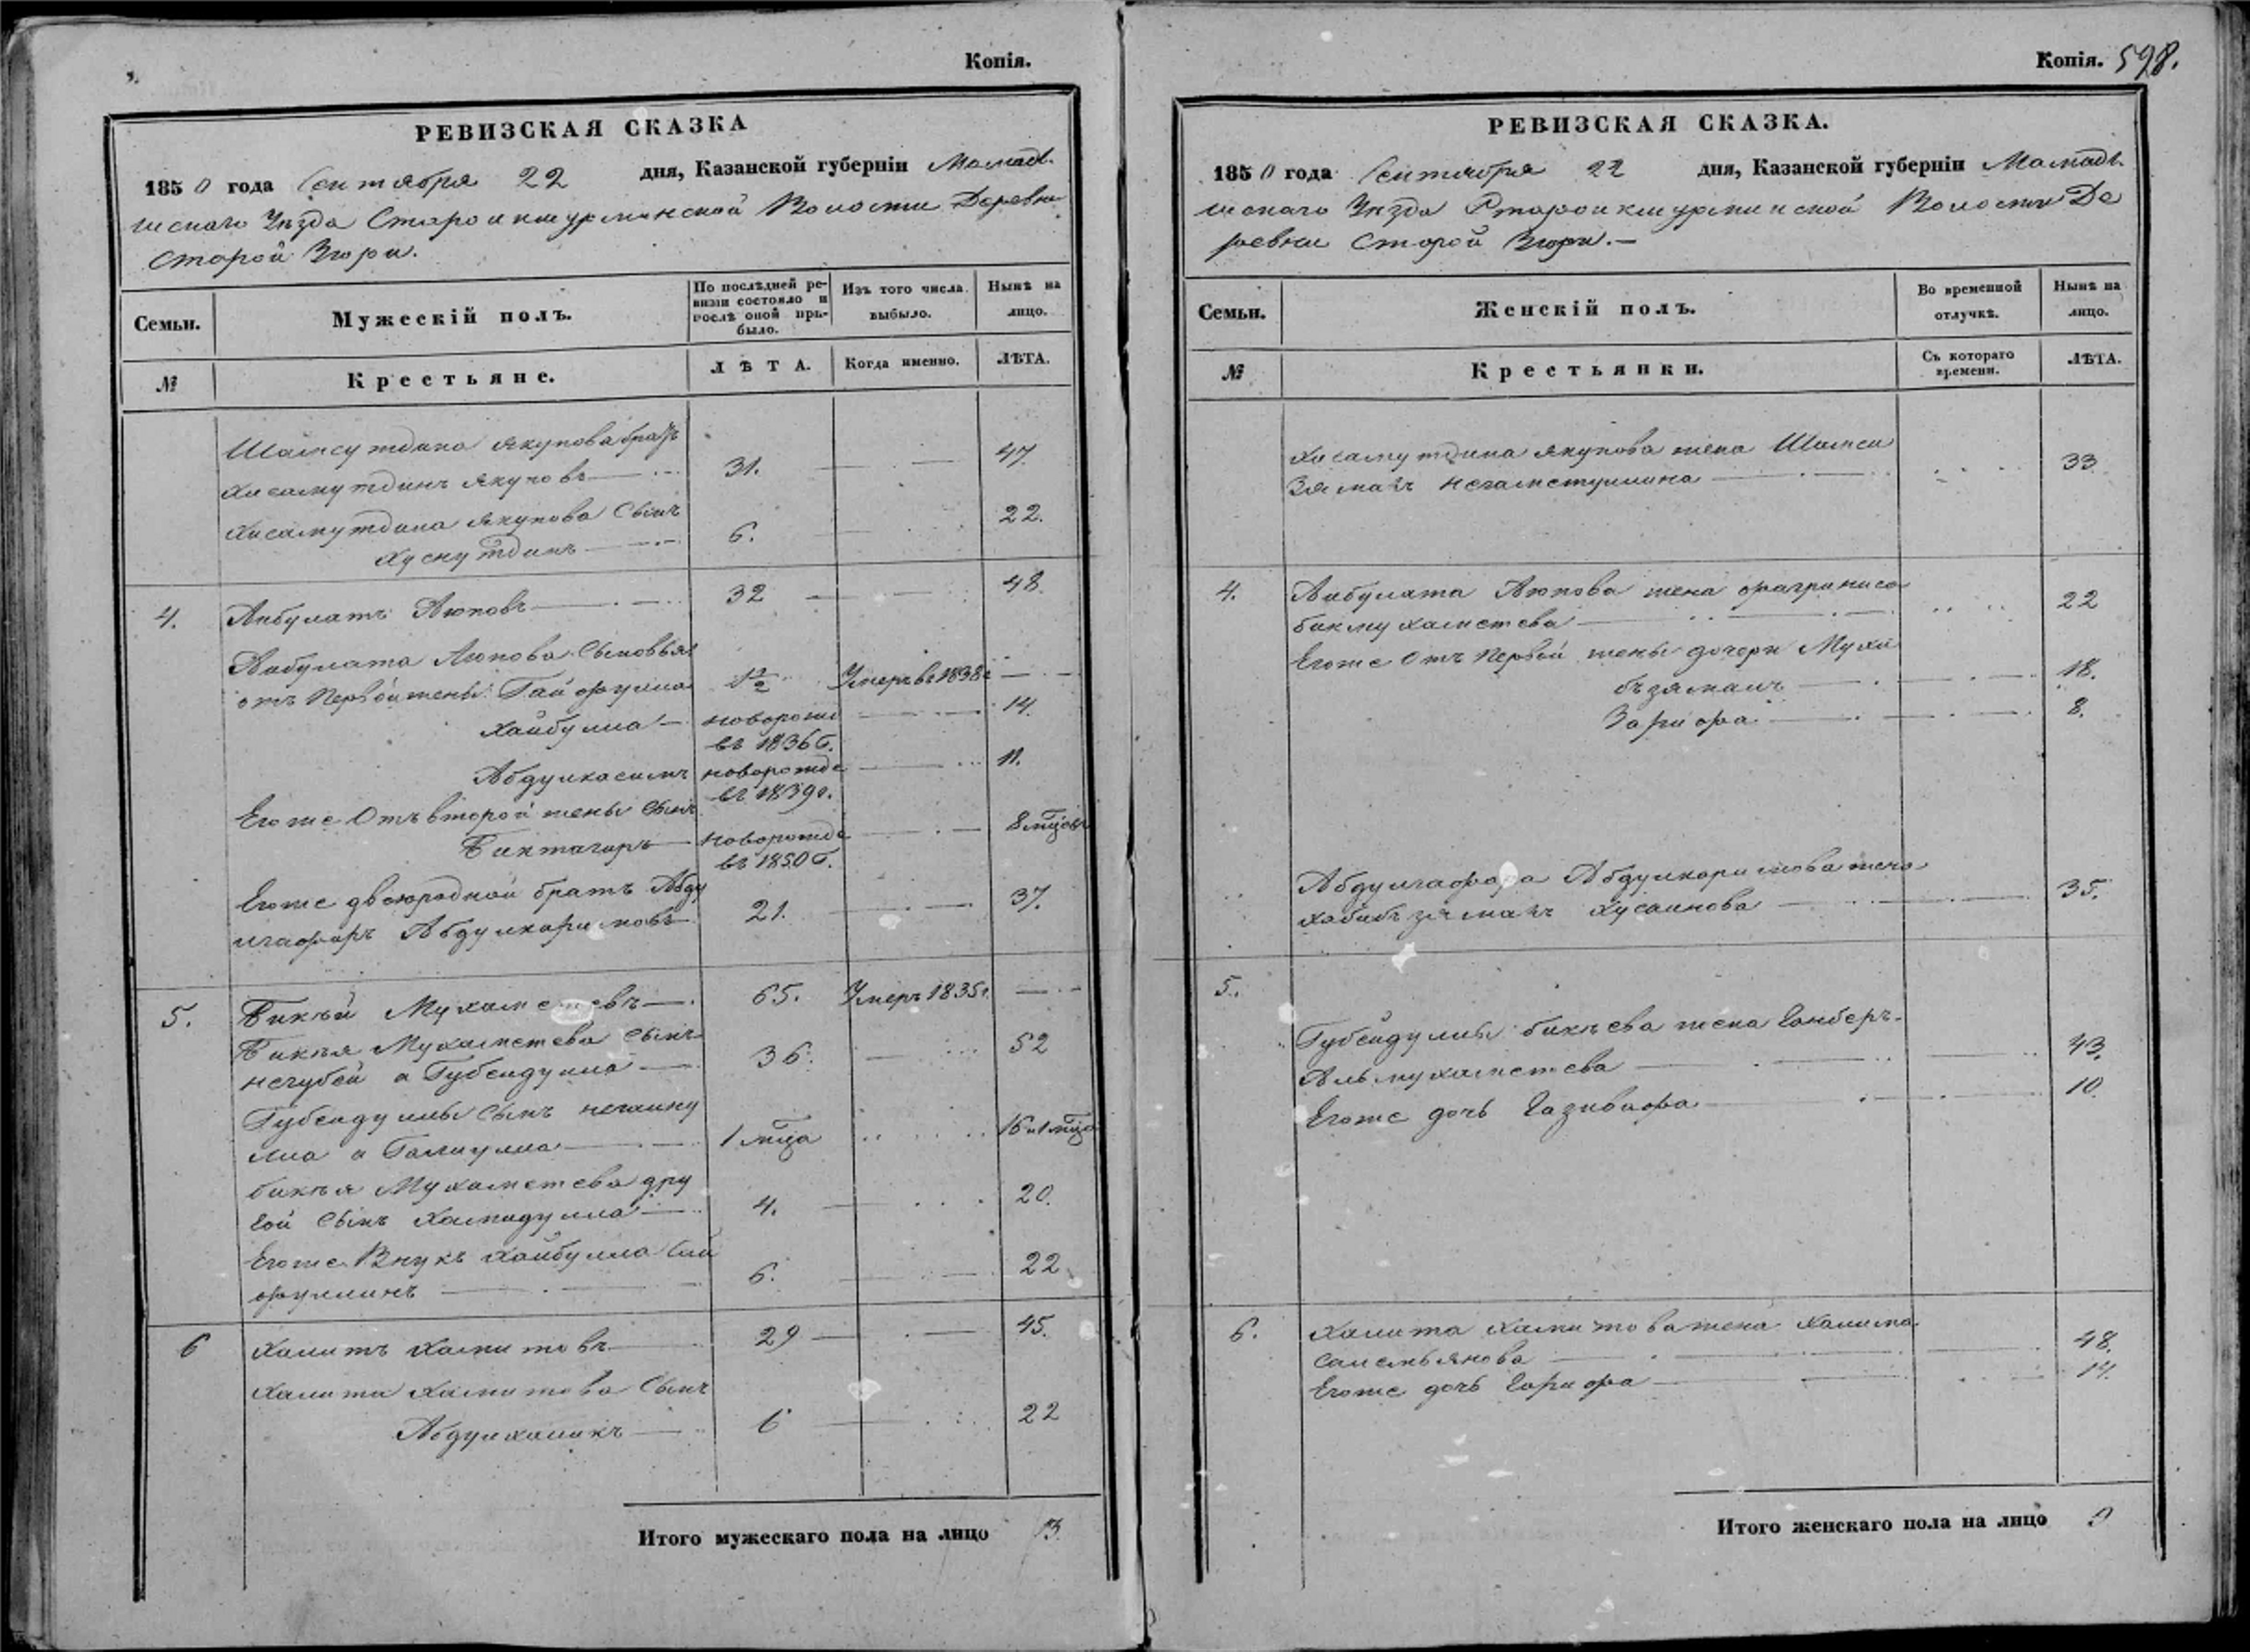 Копія.
РЕВИЗСКАЯ СКАЗКА
1850 года Сентября 22 дня, Казанской губерніи Мамады-
шскаго Уѣзда Староикшурминской Волости Деревни
Старой Зюри.
Семьи. Мужескій полъ. По послѣдней ре- Изъ того числа Нынѣ на
визіи состояло и выбыло. лицо.
послѣ оной при-
было.
№ Крестьяне. ЛѢТА. Когда именно. ЛѢТА.
Шамсутдина Якупова братъ
Хисамутдинъ Якуповъ 31. 47.
Хисамутдина Якупова Сынъ
Хуснутдинъ 6. 22.
4. Аибулатъ Аюповъ 32 48.
Аибулата Аюпова Сыновья
отъ Первой жены Гайфулла 1½ Умеръ въ 1838 г
Хайбулла новорожд 14.
въ 1836 г.
Абдулкасимъ новорожде 11.
въ 1839 г.
Егоже Отъ второй жены Сынъ
Биктагиръ новорожде 8 мцовъ
въ 1850 г.
Егоже двоюродной братъ Абду
лгафаръ Абдулкаримовъ 21. 37.
5. Бикѣй Мухаметевъ 65. Умеръ 1835 г.
Бикѣя Мухаметева Сынъ
Негубей а Губейдулла 36. 52
Губейдуллы Сынъ
лла а Галиулла 1 мца 16 и 1 мца
бикѣя Мухаметева дру
гой Сынъ Хамидулла 4. 20.
Егоже Внукъ Хайбулла Сай
фуллинъ 6. 22
6 Халитъ Хамитовъ 29 45.
Халита Хамитова Сынъ
Абдулхаликъ 6 22
Итого мужескаго пола на лицо 13.
Копія. 598.
РЕВИЗСКАЯ СКАЗКА.
1850 года Сентября 22 дня, Казанской губерніи Мамады-
шскаго Уѣзда Староикшурминской Волости Де
ревни Старой Зюри.
Семьи. Женскій полъ. Во временной Нынѣ на
отлучкѣ. лицо.
№ Крестьянки. Съ котораго ЛѢТА.
времени.
Хисамутдина Якупова жена Шамси
Зямалъ Негаметуллина 33
4. Аибулата Аюпова жена Фахриниса
бикмухаметева 22
Егоже Отъ Первой жены дочери Мухи
бъзямалъ 18.
Зарифа 8.
Абдулгафара Абдулкаримова жена
Хабибъзямалъ Хусаинова 35.
5.
Губейдуллы бикѣева жена Ганберъ
Альмухаметева 43.
Егоже дочь Газизифа 10.
6. Халита Хамитова жена Халима
Самемьянова 48.
Егоже дочь Гарифа 14.
Итого женскаго пола на лицо 9